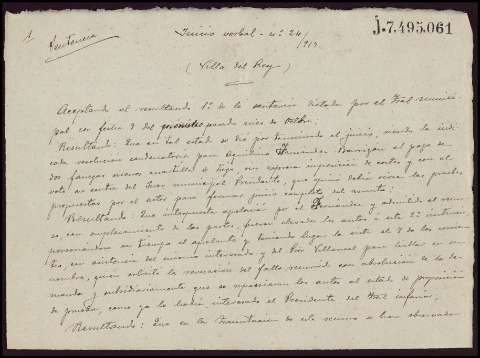 1
j.7.495.061
Sentencia
Juicio verbal - nº 24/
1919.
(Villa del Rey-)
Aceptando el resultando 1º de la sentencia dictada por el Tral munici-
pal con fecha 3 del pasado mes de
Resultando: Que en tal estado se dió por terminado el juicio, siendo la indi-
cada resolucion condenatoria para Fernandez Barragan al pago de
dos fanegas menos cuartilla de trigo, sin expresa imposicion de costas y con el
voto en contra del Juez municipal Presidente, que opinó debía las pruebas
propuestas por el actor para formar juicio completo del asunto:
Resultando: Que interpuesta apelacion por el Fernandez y admitido el recur-
so, con emplazamiento de las partes, fueron elevados los autos a esta 2ª instancia,
personandose en tiempo el apelante y teniendo lugar la vista el 3 de los corrien-
tes, con asistencia del mismo interesado y del Villarreal para hablar en su
nombre, quien solicitó la revocacion del fallo recurrido con absolucion de la de-
manda y subsidiariamente que se repusieran los autos al estado de proposicion
de prueba, como ya lo habia interesado el Presidente del Tral inferior;
Resultando: Que en la tramitacion de este recurso se han observado